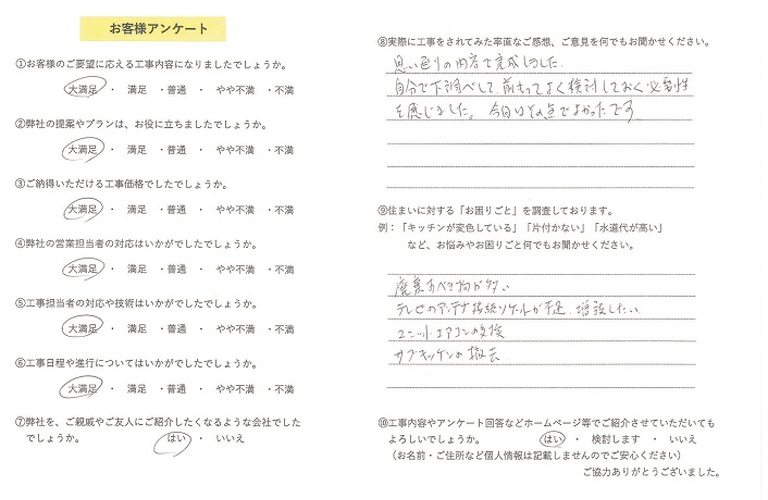 お客様アンケート
①お客様のご要望に応える工事内容になりましたでしょうか。
大満足 ・ 満足 ・普通 ・ やや不満 ・不満
②弊社の提案やプランは、お役に立ちましたでしょうか。
大満足 ・ 満足 ・普通 ・ やや不満 ・不満
③ご納得いただける工事価格でしたでしょうか。
大満足 ・ 満足 ・普通 ・ やや不満 ・不満
④弊社の営業担当者の対応はいかがでしたでしょうか。
大満足 ・ 満足 ・普通 ・ やや不満 ・不満
⑤工事担当者の対応や技術はいかがでしたでしょうか。
大満足 ・ 満足 ・普通 ・ やや不満 ・不満
⑥工事日程や進行についてはいかがでしたでしょうか。
大満足 ・ 満足 ・普通 ・ やや不満 ・不満
⑦弊社を、ご親戚やご友人にご紹介したくなるような会社でした
でしょうか。 はい ・ いいえ
⑧実際に工事をされてみた率直なご感想、ご意見を何でもお聞かせください。
思い通りの内容で完成しました.
自分で下調べして、前もってよく検討しておく必要性
を感じました。今回はその点でよかったです
⑨住まいに対する「お困りごと」を調査しております。
例：「キッチンが変色している」「片付かない」「水道代が高い」
など、お悩みやお困りごと何でもお聞かせください。
廃棄すべき物が多い
テレビのアンテナ接続ソケットが不足、増設したい
ユニットエアコンの交換
サブキッチンの撤去
⑩工事内容やアンケート回答などホームページ等でご紹介させていただいても
よろしいでしょうか。 はい ・ 検討します ・ いいえ
（お名前・ご住所など個人情報は記載しませんのでご安心ください）
ご協力ありがとうございました。